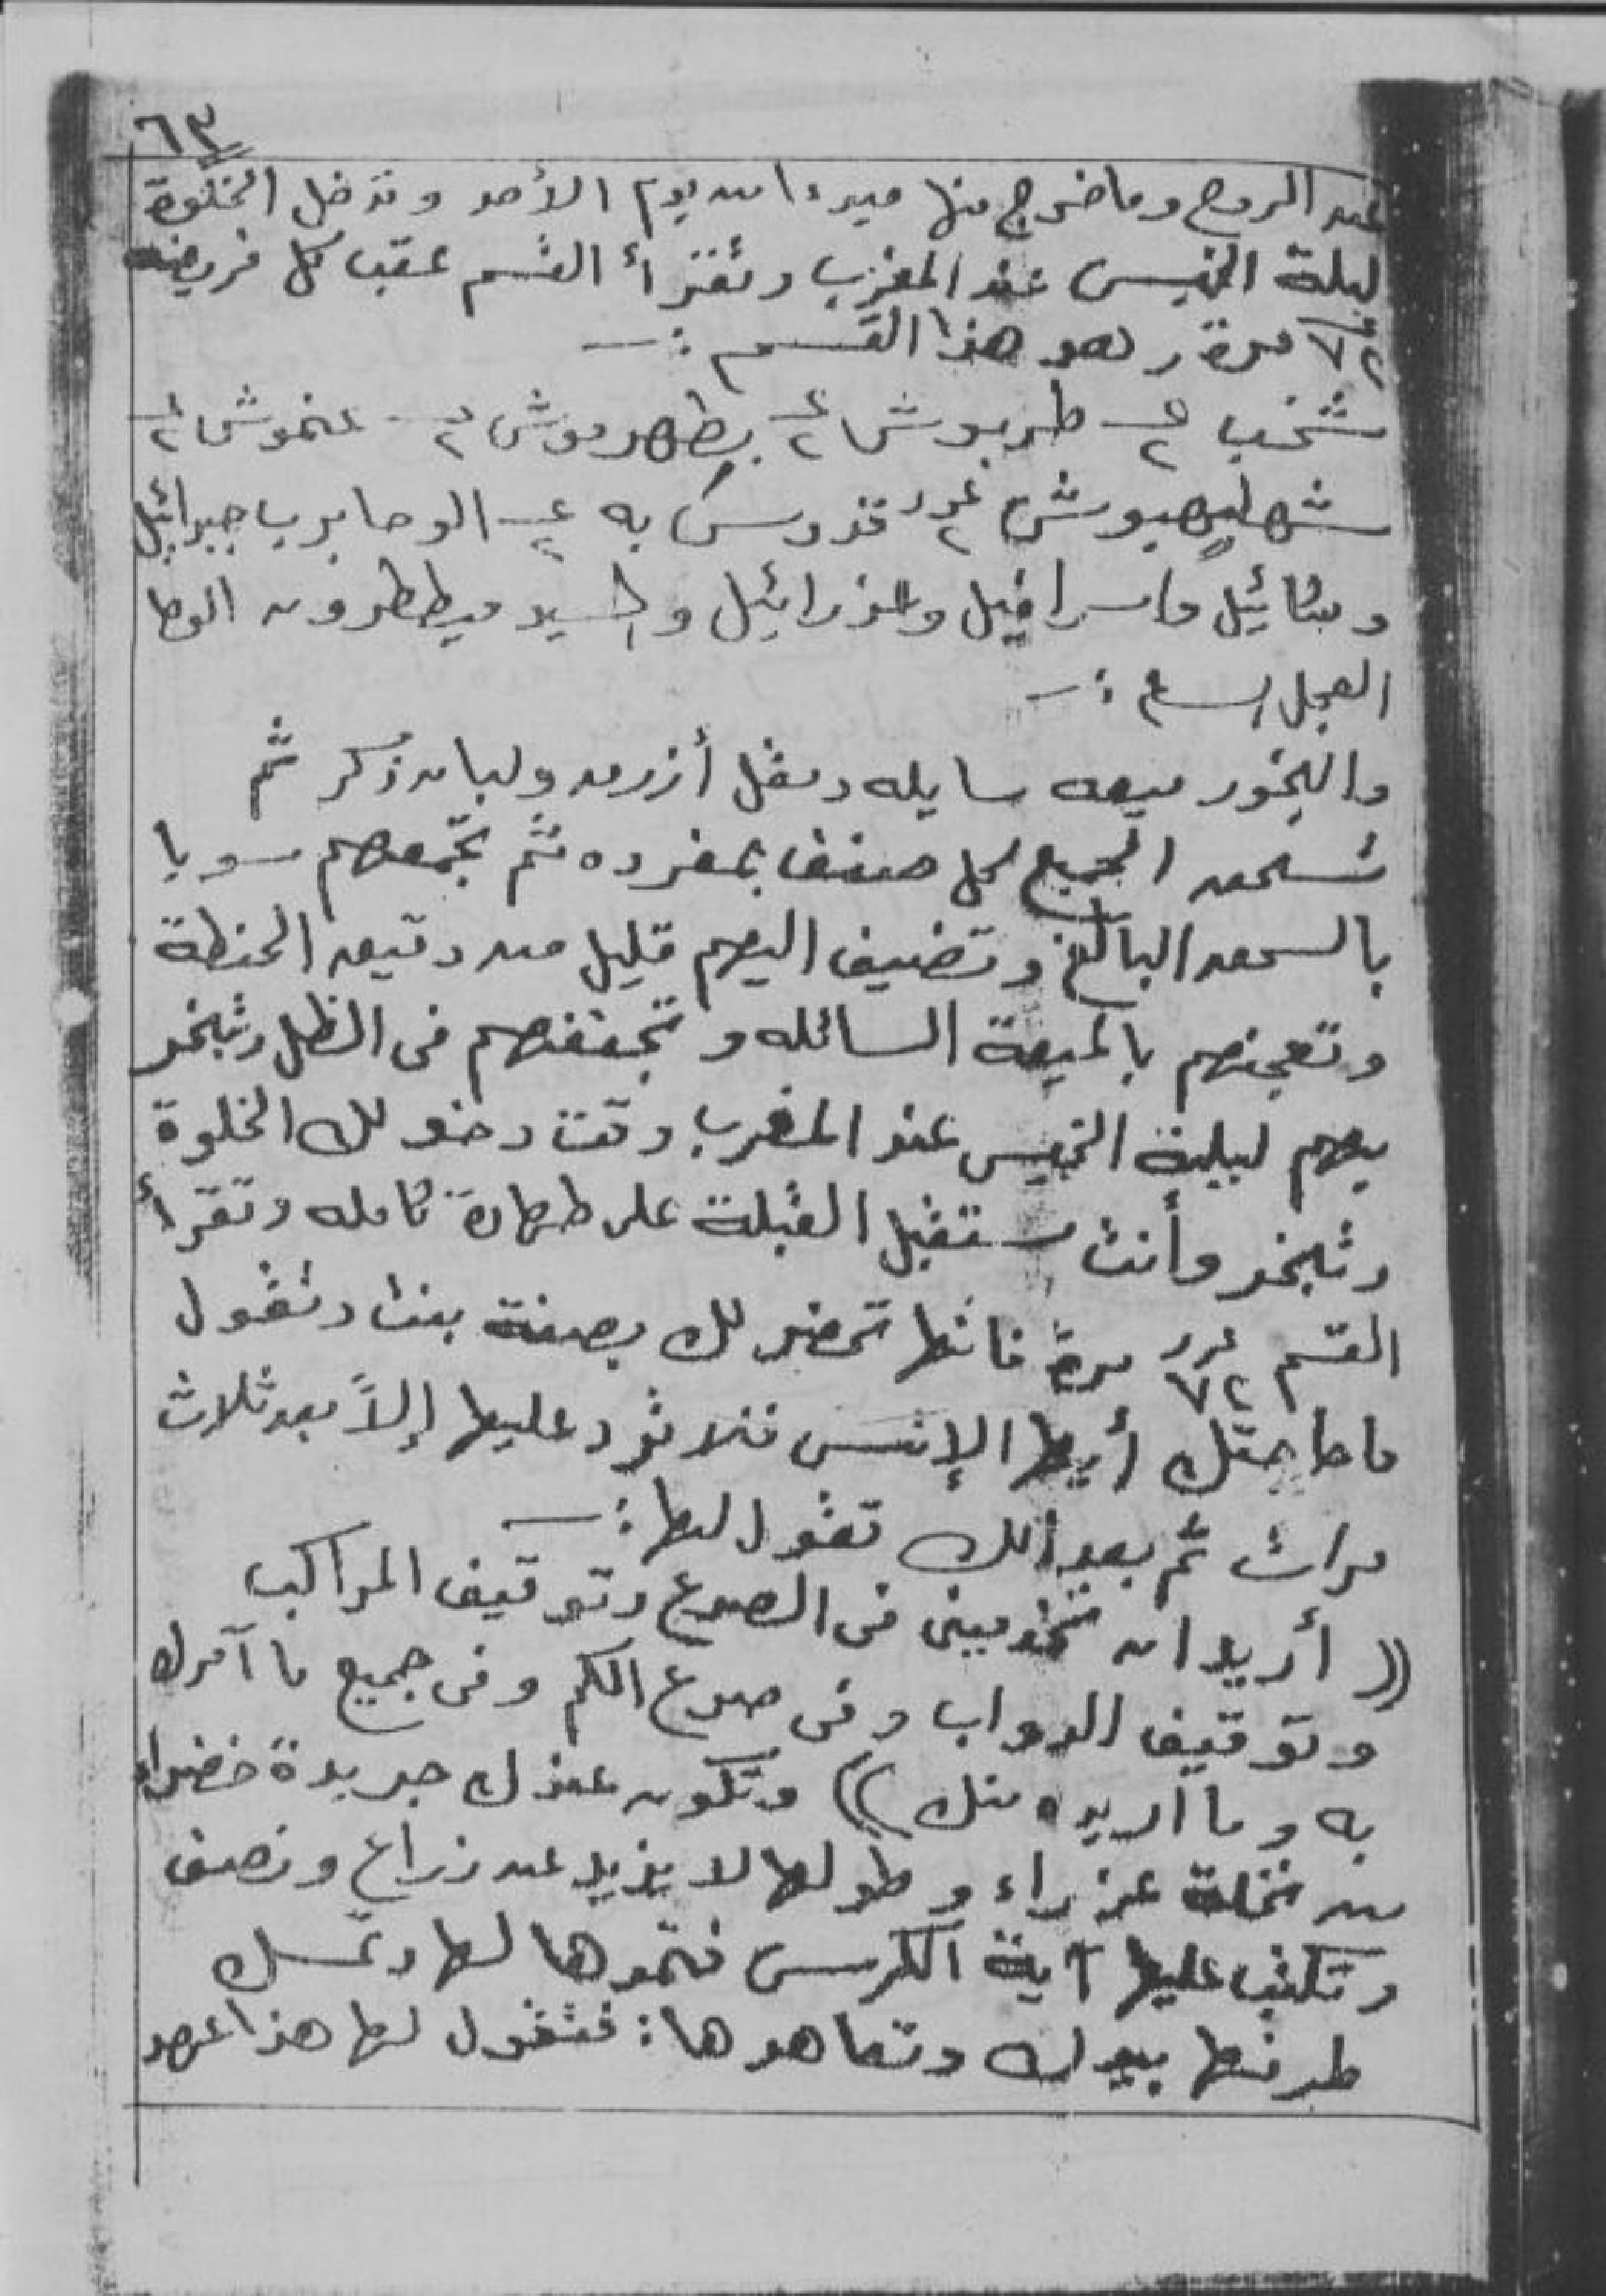 ٦٣
عن الروح وما خرج منها مبدءا من يوم الأحد وتدخل الخلوة
ليلة الخميس عند المغرب وتقرأ القسم عقب كل فريضه
٧٢ مرة وهو هذا القسم :ـ
شخب ٢ طربوش ٢ بطهرموش ٢ عنموش ٢
شهليهيوش عدد ٢ قدوس به ٢ الوحا برب جبرائيل
وميكائيل واسرافيل وعزرائيل والسيد ميططرون الوحا
العجل الساعة :ـ
والبخور ميعه سايله ومقل أزرق ولبان ذكر ثم
تسحق الجميع كل صنف بمفرده ثم تجمعهم سويا
بالسحق البالغ وتضيف اليهم قليل من دقيق الحنطة
وتعجنهم بالميعة السائله وتجففهم فى الظل وتبخر
بهم ليلية الخميس عند المغرب وقت دخولك الخلوة
وتبخر وأنت مستقبل القبلة على طهارة كامله وتقرأ
القسم عدد ٧٢ مرة فانها تحضر لك بصفة بنت وتقول
ما حاجتك أيها الإنسى فلا ترد عليها إلاً بعد ثلاث
مرات ثم بعد ذالك تقول لها :ـ
(( أريد ان تخدمينى فى الصرع وتوقيف المراكب
وتوقيف الدواب وفى صرع الكم وفى جميع ما آمرك
به وما اريده منك )) وتكون عندك جريدة خضراء
من نخلة عذراء وطولها لا يزيد عن زراع ونصف
وتكتب عليها آية الكرسى فتمدها لها وتمسك
طرفها بيدك وتعاهدها : فتقول لها هذا عهد